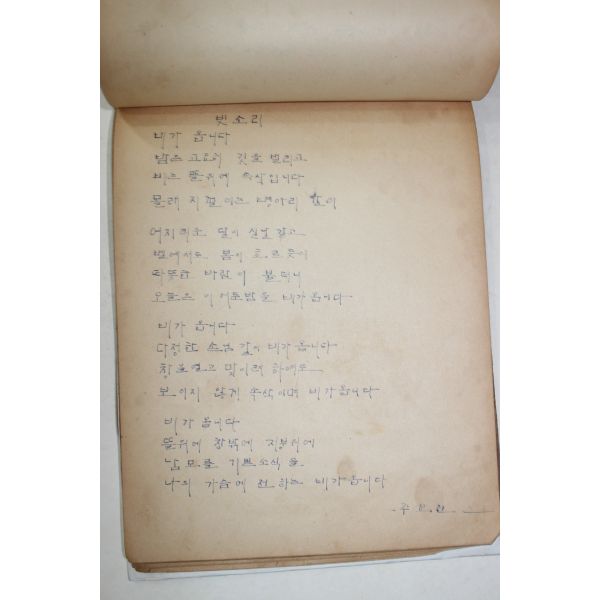 빗소리
비가 옵니다
밤은 고요히 깃을 벌리고
비는 뜰위에 속삭입니다
몰래 지껄이는 병아리 같이
이지러운 달이 실낱 같고
별에서도 봄이 흐를듯이
따뜻한 바람이 불더니
오늘은 이 어둔밤을 비가옵니다
비가 옵니다
다정한 손님 같이 비가 옵니다
창을열고 맞이려 하여도
보이지 않게 속삭이며 비가옵니다
비가 옵니다
뜰위에 창밖에 지붕위에
남모를 기쁜소식을
나의 가슴에 전하는 비가옵니다
주요한